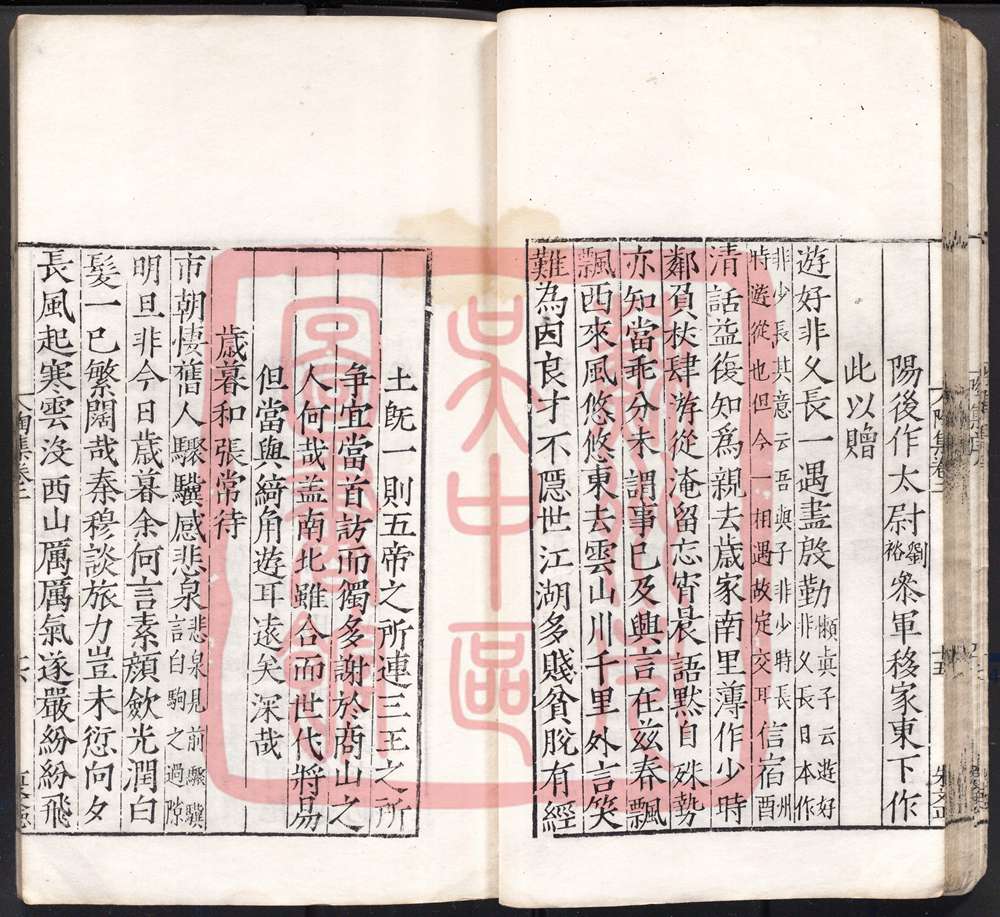 陽後作太尉劉裕參軍移家東下作
此以贈
遊好非乆長一遇盡殷勤懶眞子云遊好非乆長日本作
非少長其意云吾與子非少時長洲時遊從也但今一相遇故定交耳信宿酧
清話益復知爲親去歲家南里薄作少時
鄰負杖肆游從淹留忘宵晨語黙自殊勢
亦知當乖分未謂事已及興言在兹春飄
飄西來風悠悠東去雲山川千里外言笑
難為因良才不隱世江湖多賤貧脫有經
土旣一則五帝之所連三王之所
争宜當首訪而獨多謝於商山之
人何哉盖南北雖合而世代將易
但當與綺角遊耳遠矣深哉
歲暮和張常待
市朝悽舊人驟驥感悲泉悲泉見前驟驥言白駒之過隙
明旦非今日歲暮余何言素顏歛光潤白
髮一已繁闊哉秦穆談旅力豈未愆向夕
長風起寒雲没西山厲厲氣遂嚴紛紛飛
陶集卷三
十六
吳中區
圖書館